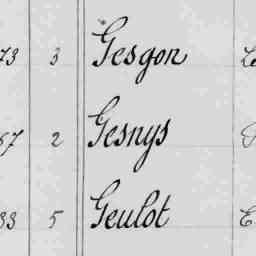 73 3 Gesgon
67 2 Gesnys
33 5 Geulot